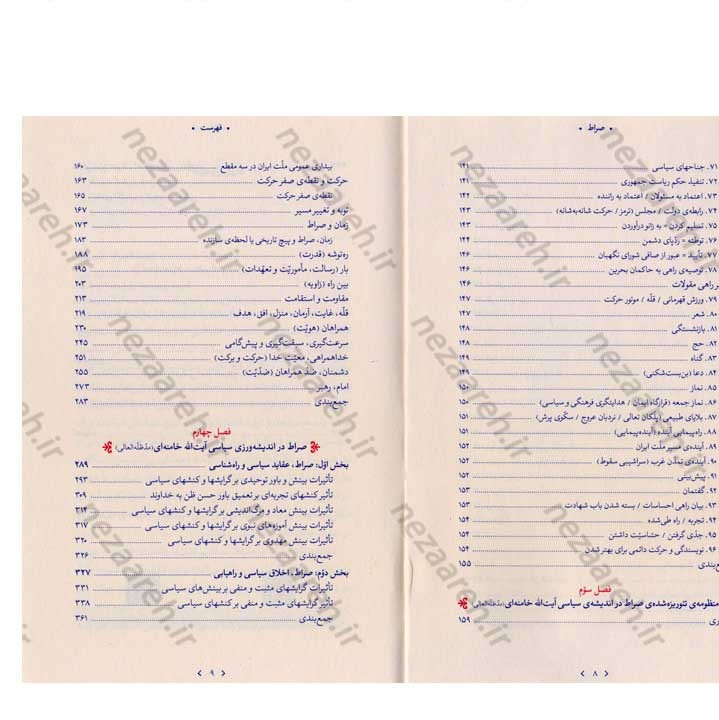 صراط
۷۱. جناحهای سیاسی ۱۴۱
۷۲. تنفیذ حکم ریاست جمهوری ۱۴۱
۷۳. اعتماد به مسئولان / اعتماد به راننده ۱۴۲
۷۴. رابطه‌ی دولت / مجلس (ترمز / حرکت شانه‌به‌شانه) ۱۴۳
۷۵. تسلیم کردن = به زانو درآوردن ۱۴۳
۷۶. توطئه = ردّپای دشمن ۱۴۴
۷۷. تأیید = عبور از صافی شورای نگهبان ۱۴۶
۷۸. توصیه‌ی راهی به حاکمان بحرین ۱۴۶
راهی مقولات ۱۴۶
۷۹. ورزش قهرمانی / قلّه / موتور حرکت ۱۴۷
۸۰. شعر ۱۴۷
۸۱. بازنشستگی ۱۴۸
۸۲. حج ۱۴۸
۸۳. گناه ۱۴۹
۸۴. دعا (بن‌بست‌شکنی) ۱۴۹
۸۵. نماز ۱۵۰
۸۶. نماز جمعه (قرارگاه ایمان / هدایتگری فرهنگی و سیاسی) ۱۵۰
۸۷. بلایای طبیعی (پلکان تعالی / نردبان عروج / سکّوی پرش) ۱۵۱
۸۸. راه‌پیمایی آینده (آینده‌پیمایی) ۱۵۱
۸۹. آینده‌ی مسیر ملّت ایران ۱۵۲
۹۰. آینده‌ی تمدّن غرب (سراشیبی سقوط) ۱۵۲
۹۱. پیش‌بینی ۱۵۲
۹۲. گفتمان ۱۵۳
۹۳. بیان راهی احساسات / بسته شدن باب شهادت ۱۵۳
۹۴. تجربه / راه طی‌شده ۱۵۴
۹۵. جدّی گرفتن / حسّاسیّت داشتن ۱۵۴
۹۶. نویسندگی و حرکت دائمی برای بهتر شدن ۱۵۴
۱۵۵
فصل سوّم
منظومه‌ی تئوریزه‌شده‌ی صراط در اندیشه‌ی سیاسی آیت‌الله خامنه‌ای (مدّظلّه‌العالی)
۱۵۹
۸
فهرست
بیداری عمومی ملّت ایران در سه مقطع ۱۶۰
حرکت و نقطه‌ی صفر حرکت ۱۶۳
نقطه‌ی صفر حرکت ۱۶۵
توبه و تغییر مسیر ۱۶۷
زمان و صراط ۱۷۳
زمان، صراط و پیچ تاریخی یا لحظه‌ی سازنده ۱۸۳
ره‌توشه (قدرت) ۱۸۸
بار (رسالت، مأموریّت و تعهّدات) ۱۹۵
بین راه (زاویه) ۲۰۳
مقاومت و استقامت ۲۱۳
قلّه، غایت، آرمان، منزل، افق، هدف ۲۱۹
همراهان (هویّت) ۲۳۰
سرعت‌گیری، سبقت‌گیری و پیش‌گامی ۲۴۵
خداهمراهی، معیّت خدا (حرکت و برکت) ۲۵۱
دشمنان، ضدّ همراهان (ضدّیّت) ۲۵۵
امام، رهبر ۲۷۳
جمع‌بندی ۲۸۳
فصل چهارم
صراط در اندیشه‌ورزی سیاسی آیت‌الله خامنه‌ای (مدّظلّه‌العالی)
بخش اوّل: صراط، عقاید سیاسی و راه‌شناسی ۲۸۹
تأثیرات بینش و باور توحیدی بر گرایشها و کنشهای سیاسی ۲۹۳
تأثیر کنشهای تجربه‌ای بر تعمیق باور حسن ظن به خداوند ۳۰۹
تأثیرات بینش معاد و مرگ‌اندیشی بر گرایشها و کنشهای سیاسی ۳۱۴
تأثیرات بینش آموزه‌های نبوی بر گرایشها و کنشهای سیاسی ۳۱۷
تأثیرات بینش مهدوی بر گرایشها و کنشهای سیاسی ۳۲۰
جمع‌بندی ۳۲۶
بخش دوّم: صراط، اخلاق سیاسی و راهیابی ۳۲۷
تأثیرات گرایشهای مثبت و منفی بر بینش‌های سیاسی ۳۳۱
تأثیر گرایشهای مثبت و منفی بر کنشهای سیاسی ۳۳۸
جمع‌بندی ۳۶۱
۹
nezaareh.ir
nezaareh.ir
nezaareh.ir
nezaareh.ir
nezaareh.ir
nezaareh.ir
nezaareh.ir
nezaareh.ir
nezaareh.ir
nezaareh.ir